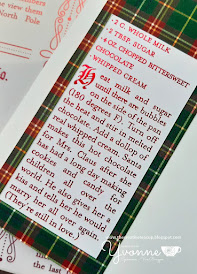 view them
North Pole
•2 C. WHOLE MILK
•2 TBSP. SUGAR
•6 OZ. CHOPPED BITTERSWEET
CHOCOLATE
•WHIPPED CREAM
Heat milk and sugar
until there are bubbles
on the side of the pan
(180 degrees F). Turn off
the heat and stir in melted
chocolate. Add a dollop of
whipped cream. Santa
makes this hot chocolate
for Mrs. Claus after she
has had a long day making
cookies and candy for
children all over the
world. He also gives her a
kiss and tells her he would
marry her all over again.
(They're still in love.)
Yvonne